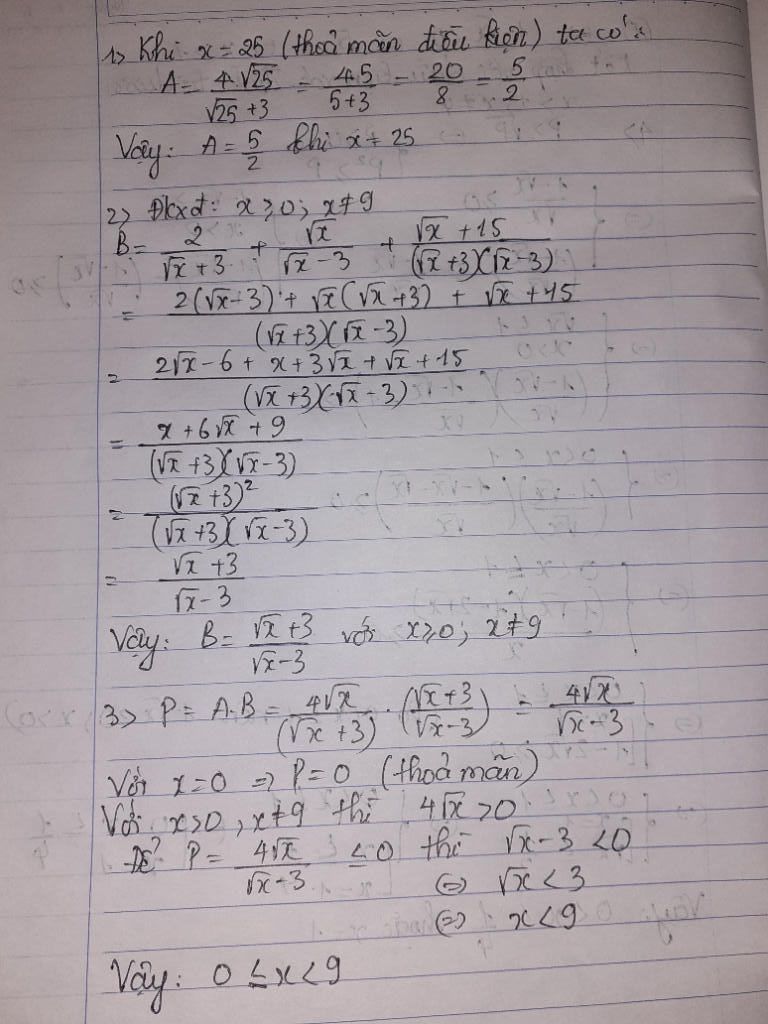 1> Khi x = 25 (thoả mãn điều kiện) ta có:
A = 4√25 / (√25 + 3) = 4.5 / (5+3) = 20/8 = 5/2
Vậy: A = 5/2 khi x = 25
2> Đkxđ: x ≥ 0; x ≠ 9
B = 2/(√x + 3) + √x/(√x − 3) + (√x + 15)/((√x+3)(√x−3))
= (2(√x−3) + √x(√x+3) + √x + 15)/((√x+3)(√x−3))
= (2√x − 6 + x + 3√x + √x + 15)/((√x+3)(√x−3))
= (x + 6√x + 9)/((√x+3)(√x−3))
= (√x+3)²/((√x+3)(√x−3))
= (√x+3)/(√x−3)
Vậy: B = (√x+3)/(√x−3) với x ≥ 0; x ≠ 9
3> P = A.B = 4√x/(√x+3) . ((√x+3)/(√x−3)) = 4√x/(√x−3)
Với x = 0 => P = 0 (thoả mãn)
Với x > 0, x ≠ 9 thì 4√x > 0
Để P = 4√x/(√x−3) ≤ 0 thì √x − 3 < 0
<=> √x < 3
<=> x < 9
Vậy: 0 ≤ x < 9